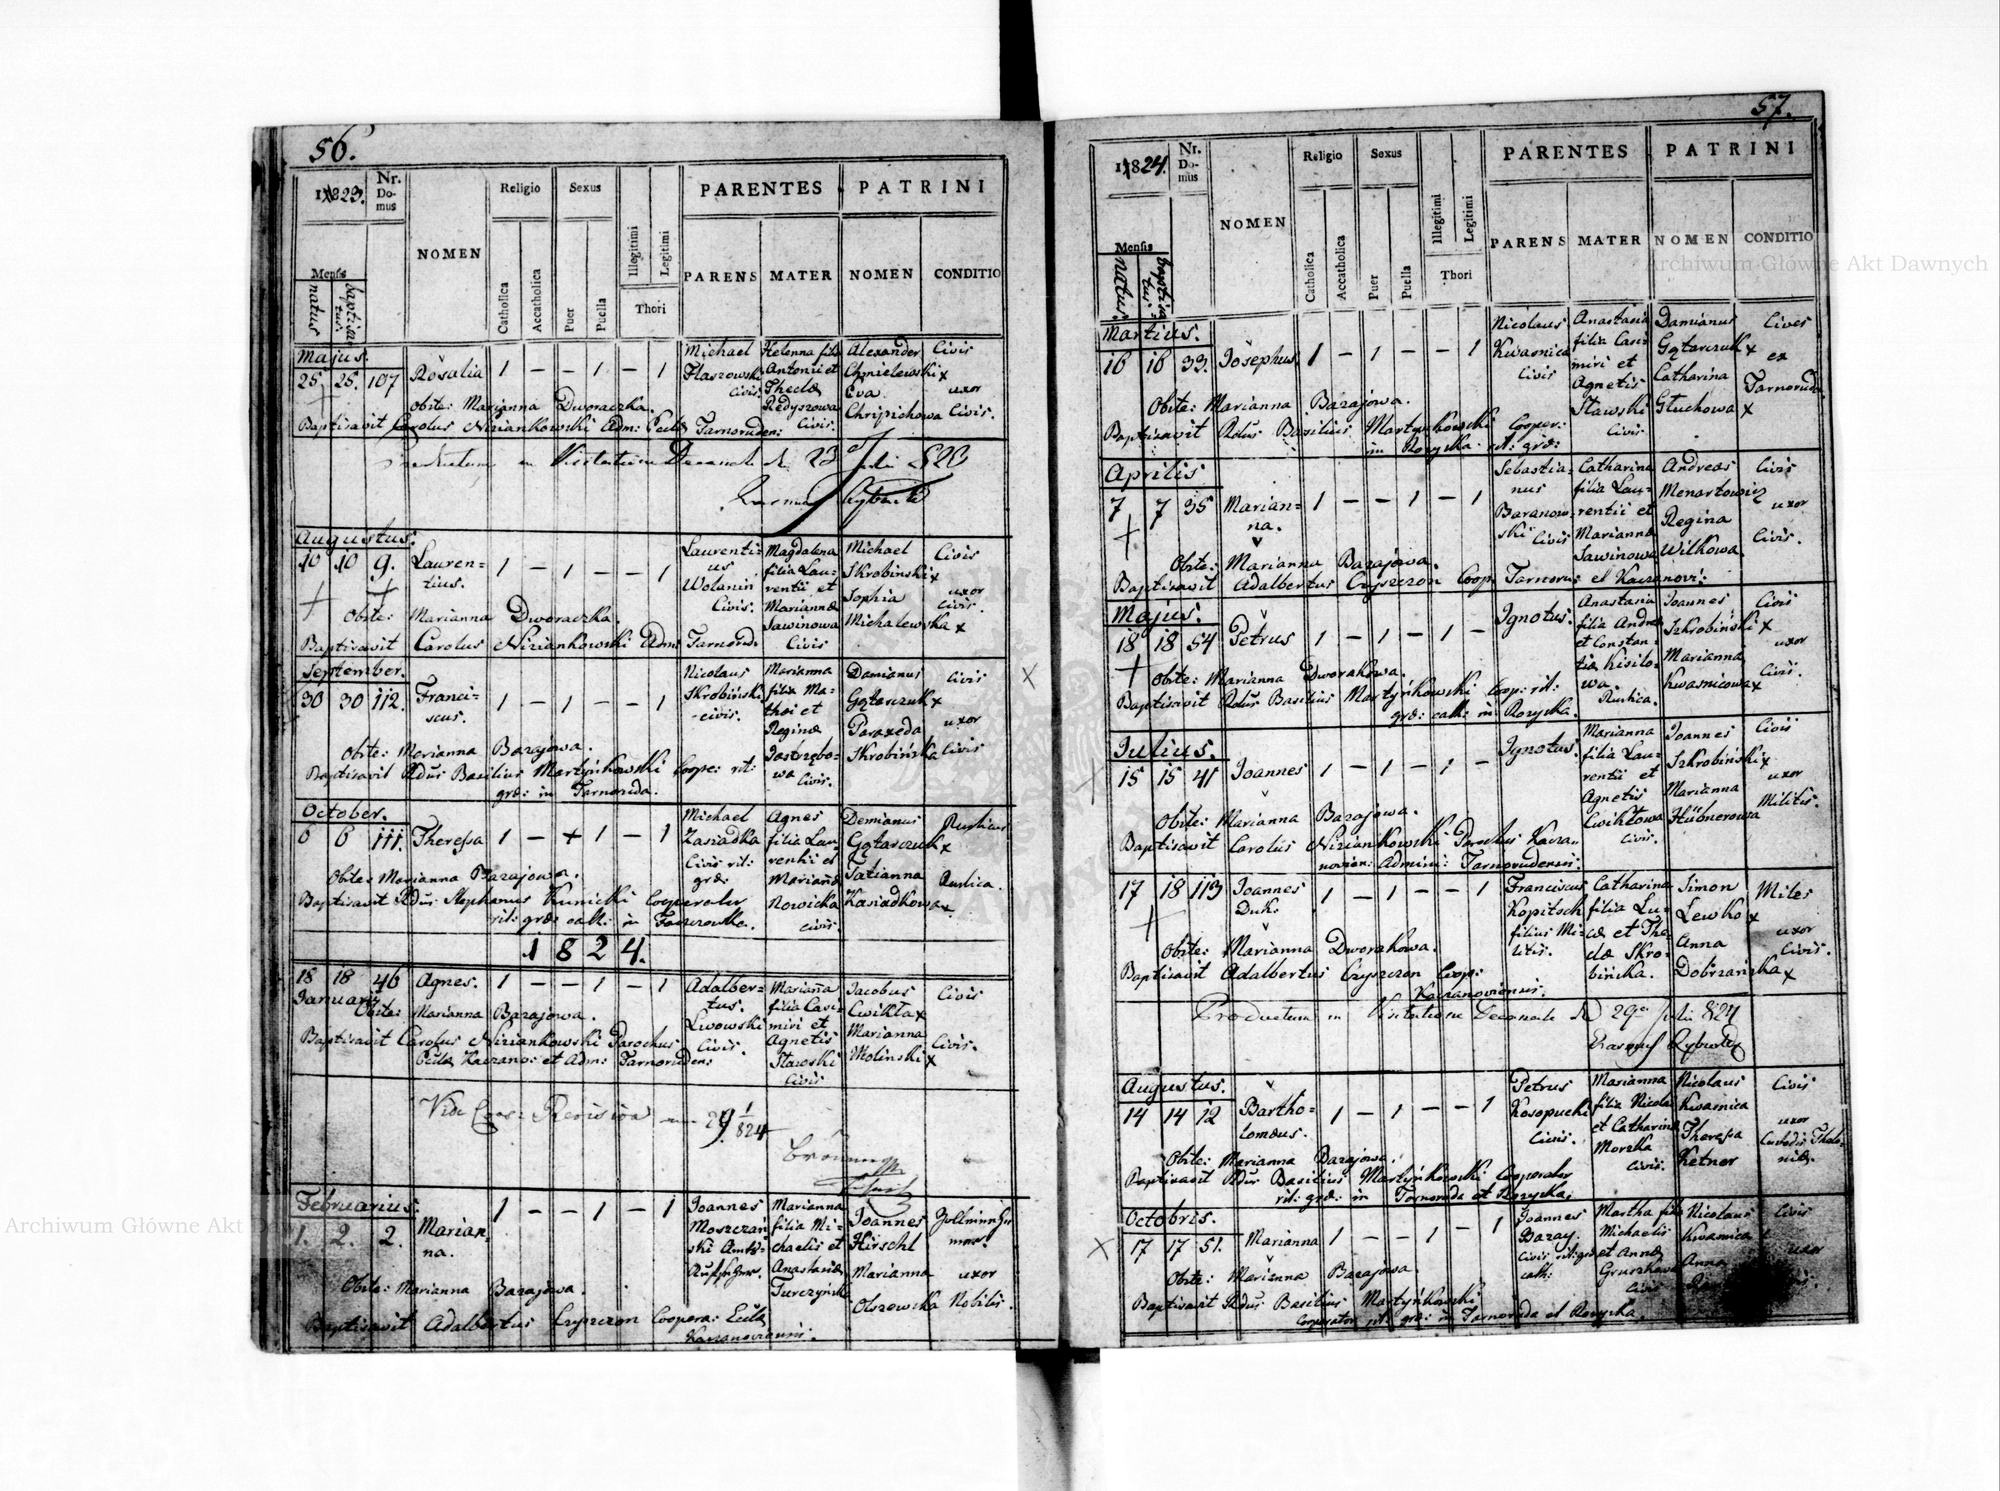 56.
1823.
Nr. Domus
NOMEN
Religio
Sexus
Illegitimi
Legitimi
PARENTES
PATRINI
Mensis
natus
baptisatus
Catholica
Accatholica
Puer
Puella
Thori
PARENS
MATER
NOMEN
CONDITIO
Majus.
25 25. 107 Rosalia 1 – – 1 – 1
Michael Flaszowski Civis.
Helenna filia Antonii et Theclæ Redyszowa Civis.
Alexander Chmielewski x
Eva
Civis
uxor Civis.
Obste: Marianna Dworaczka.
Baptisavit Carolus Niziankowski Adm: Eccl Tarnoruden:
Productum in Visitatione Decanali d. 23 Julii 823
Augustus.
10 10 9. Lauren-
tius. 1 – 1 – – 1
Laurenti-
us
Wolanin
Civis.
Magdalena
filia Lau-
rentii et
Mariannæ
Sawinowa
Civis
Michael
Skrobinski x
Sophia
Michalewska x
Civis
uxor
Civis.
Obste: Marianna Dworaczka.
Baptisavit Carolus Niziankowski Adm: Tarnorud:
September.
30 30 112. Franci-
scus. 1 – 1 – – 1
Nicolaus
Skrobiński
civis.
Marianna
filia Ma-
thæi et
Reginæ
Jastrzębo-
wa Civis.
Damianus
Gątarczuk x
Paraxeda
Skrobińska
Civis
uxor
Civis
Obste: Marianna Barajowa.
Baptisavit Rdus Basilius Martyńkowski Coope: rit:
græ: in Tarnoruda.
October.
6 6 111. Theresa 1 – + 1 – 1
Michael
Zasiadka
Civis rit:
græ:
Agnes
filia Lau-
rentii et
Mariannæ
Nowicka
civis.
Demianus
Gątarczuk x
Tatianna
Zasiadkowa x
Rusticus
Rustica.
Obste: Marianna Barajowa.
Baptisavit Rdus Stephanus Kunicki Cooperator
rit: græ: cath: in Faszczowka.
1824.
18 18 46 Agnes. 1 – – 1 – 1
Januarii
Adalber-
tus.
Lwowski
Civis.
Marianna
filia Casi-
miri et
Agnetis
Stawski
Civis
Jacobus
Cwikła x
Marianna
Wolinski x
Civis
Civis.
Obste: Marianna Barajowa.
Baptisavit Carolus Niziankowski Parochus
Eccla Kaczano: et Adm: Tarnoruden:
Februarius.
1. 2. 2. Marian-
na. 1 – – 1 – 1
Joannes
Moszczań
ski Amts-
Aufseher.
Marianna
filia Mi-
chaelis et
Anastasiæ
Turczyńsk
Joannes
Hirschl
Marianna
Olszewska
uxor
Nobilis.
Obste: Marianna Barajowa.
Baptisavit Adalbertus Czyszczon Coopera: Eccla
Kaczanoviensis.
57.
1824.
Nr. Domus
NOMEN
Religio
Sexus
Illegitimi
Legitimi
PARENTES
PATRINI
Mensis
natus.
baptisatus.
Catholica
Accatholica
Puer
Puella
Thori
PARENS
MATER
NOMEN
CONDITIO
Martius.
16 16 33. Josephus 1 – 1 – – 1
Nicolaus
Kwasnica
Civis
Anastasia
filia Casi-
miri et
Agnetis
Stawski
Civis
Damianus
Gątarczuk x
Catharina
Głuchowa x
Cives
ex
Tarnoruda
Obste: Marianna Barajowa.
Baptisavit Rdus Basilius Martyńkowski Cooper:
in Rożyska rit: græ:
Aprilis
7 7 35 Marian-
na. 1 – – 1 – 1
Sebastia-
nus
Baranow-
ski Civis
Catharina
filia Lau-
rentii et
Marianna
Sawinowa
Andreas
Menartowicz
Regina
Witkowa
Civis
uxor
Civis.
Obste: Marianna Barajowa.
Baptisavit Adalbertus Czyszczon Coop. Tarnoru: et Kaczanovi:
Majus.
18 18 54 Petrus 1 – 1 – 1 –
Ignotus.
Anastasia
filia Andre
et Constan-
tiæ Kisilo-
wa.
Rustica.
Joannes
Szkrobiński x
Marianna
Kwasnicowa x
Civis
uxor
Civis.
Obste: Marianna Dworakowa.
Baptisavit Rdus Basilius Martyńkowski Coop: rit:
græ: cath: in Rozyska.
Julius.
15 15 41 Joannes 1 – 1 – 1 –
Ignotus.
Marianna
filia Lau-
rentii et
Agnetis
Cwikłowa
Civis.
Joannes
Szkrobiński x
Marianna
Hübnerowa
Civis
uxor
Militis.
Obste: Marianna Barajowa.
Baptisavit Carolus Niziankowski Parochus Kacza-
novien: Admini: Tarnorudensis.
17 18 113 Joannes
Duk: 1 – 1 – – 1
Franciscus
Kopitsch
filius Mi-
litis.
Catharina
filia Lu-
cæ et The-
clæ Skro-
binska.
Simon
Lewko x
Anna
Dobrzańska x
Miles
uxor
Civis.
Obste: Marianna Dworakowa.
Baptisavit Adalbertus Czyszczon Coop:
Kaczanoviensis.
Productum in Visitatione Decanali d. 29 Julii 824
Augustus.
14 14 12 Bartho-
lomæus. 1 – 1 – – 1
Petrus
Kosopucki
Civis.
Marianna
filia Nicolai
et Catharina
Morska
Civis.
Nicolaus
Kwasnica
Theresa
Ketner
Civis
uxor
Obste: Marianna Barajowa.
Baptisavit Rdus Basilius Martyńkowski Cooperator
rit: græ: in Tarnoruda et Rozyska.
Octobris.
17 17 51. Marianna 1 – – 1 – 1
Joannes
Baray.
Civis rit: græ
cath:
Martha filia
Michaelis
et Annæ
Gruszkowa
Civis
Nicolaus
Kwasnica
Anna
Civis
uxor
Obste: Marianna Barajowa.
Baptisavit Rdus Basilius Martyńkowski
Cooperator rit: græ: in Tarnoruda et Rozyska.
Archiwum Główne Akt Dawnych
Archiwum Główne Akt Dawnych